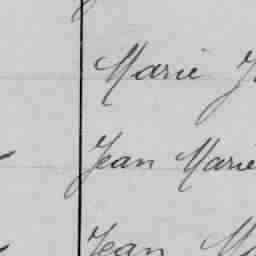 Marie
Jean Marie
Jean